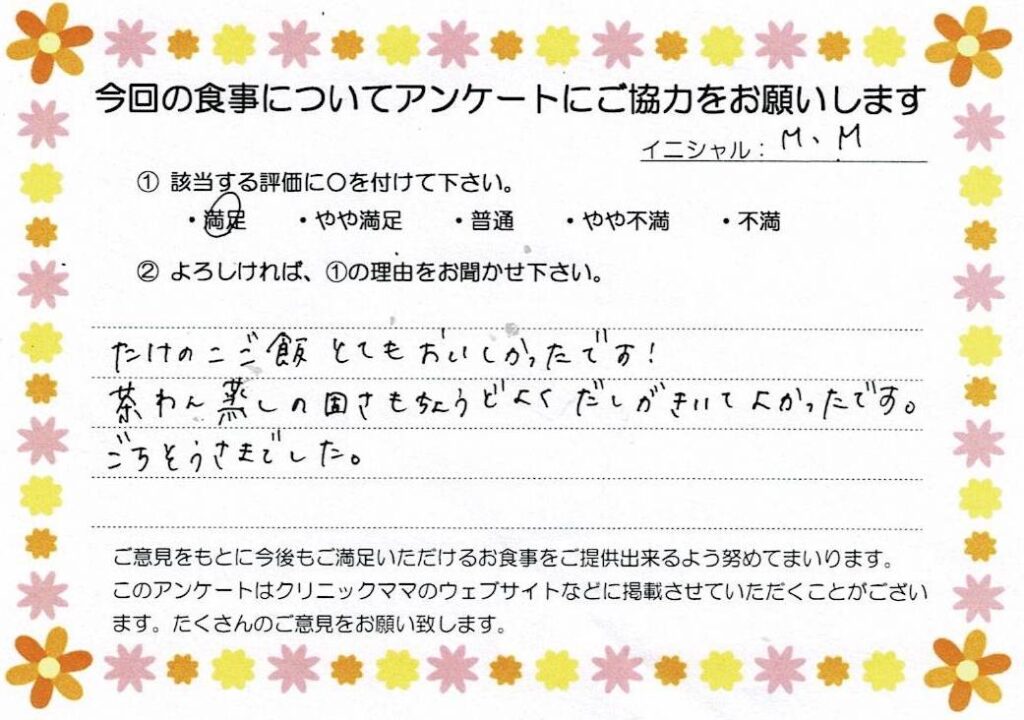 今回の食事についてアンケートにご協力をお願いします
イニシャル： M、M
① 該当する評価に〇を付けて下さい。
・満足 ・やや満足 ・普通 ・やや不満 ・不満
② よろしければ、①の理由をお聞かせ下さい。
たけのこご飯 とてもおいしかったです！
茶わん蒸しの固さもちょうどよく だしがきいてよかったです。
ごちそうさまでした。
ご意見をもとに今後もご満足いただけるお食事をご提供出来るよう努めてまいります。
このアンケートはクリニックママのウェブサイトなどに掲載させていただくことがござい
ます。たくさんのご意見をお願い致します。